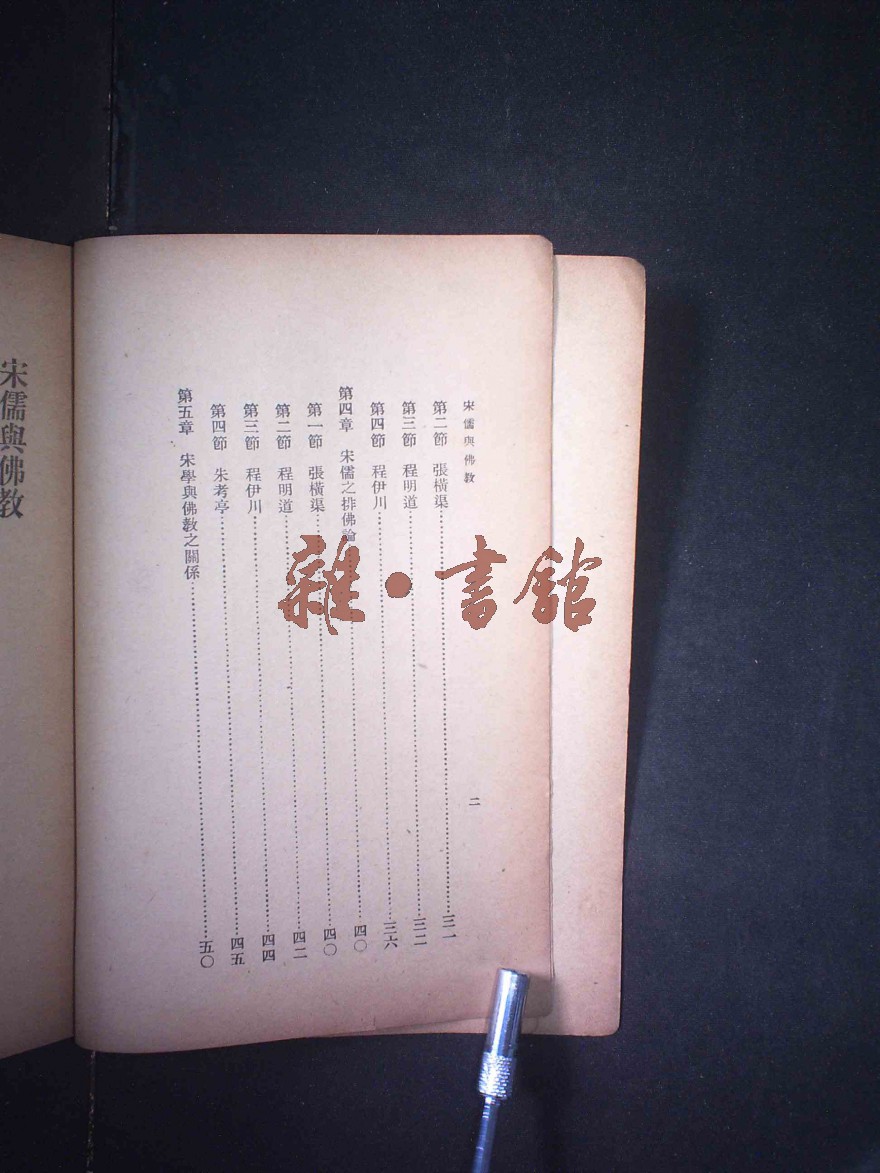 宋儒與佛教
二
第二節 張橫渠……三一
第三節 程明道……三二
第四節 程伊川……三六
第四章 宋儒之排佛論……四〇
第一節 張橫渠……四〇
第二節 程明道……四二
第三節 程伊川……四四
第四節 朱考亭……四五
第五章 宋學與佛教之關係……五〇
宋儒與佛教
雜·書館